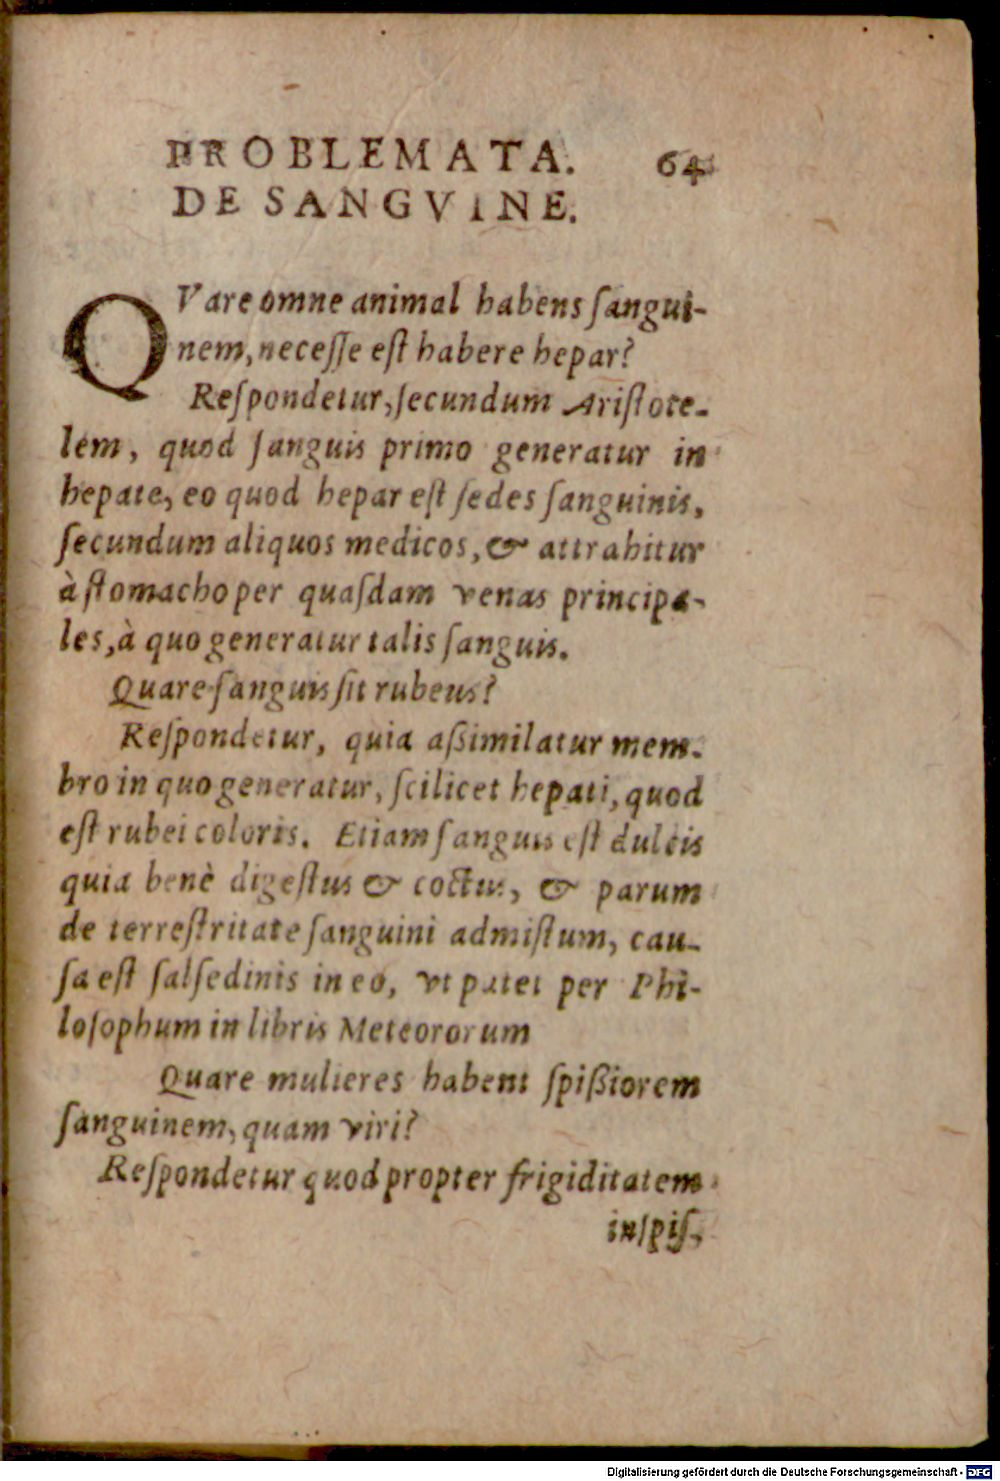 PROBLEMATA. 64
DE SANGVINE.
QVare omne animal habens ſangui-
nem, neceſſe eſt habere hepar?
Reſpondetur, ſecundum Ariſtote-
lem, quod ſanguis primo generatur in
hepate, eo quod hepar eſt ſedes ſanguinis,
ſecundum aliquos medicos, & attrahitur
à ſtomacho per quaſdam venas principa-
les, à quo generatur talis ſanguis.
Quare ſanguis ſit rubeus?
Reſpondetur, quia aßimilatur mem-
bro in quo generatur, ſcilicet hepati, quod
eſt rubei coloris. Etiam ſanguis eſt dulcis
quia benè digeſtus & coctus, & parum
de terreſtritate ſanguini admiſtum, cau-
ſa eſt ſalſedinis in eo, vt patet per Phi-
loſophum in libris Meteororum
Quare mulieres habent ſpißiorem
ſanguinem, quam viri?
Reſpondetur quod propter frigiditatem
inſpiſ-
Digitalisierung gefördert durch die Deutsche Forschungsgemeinschaft - DFG